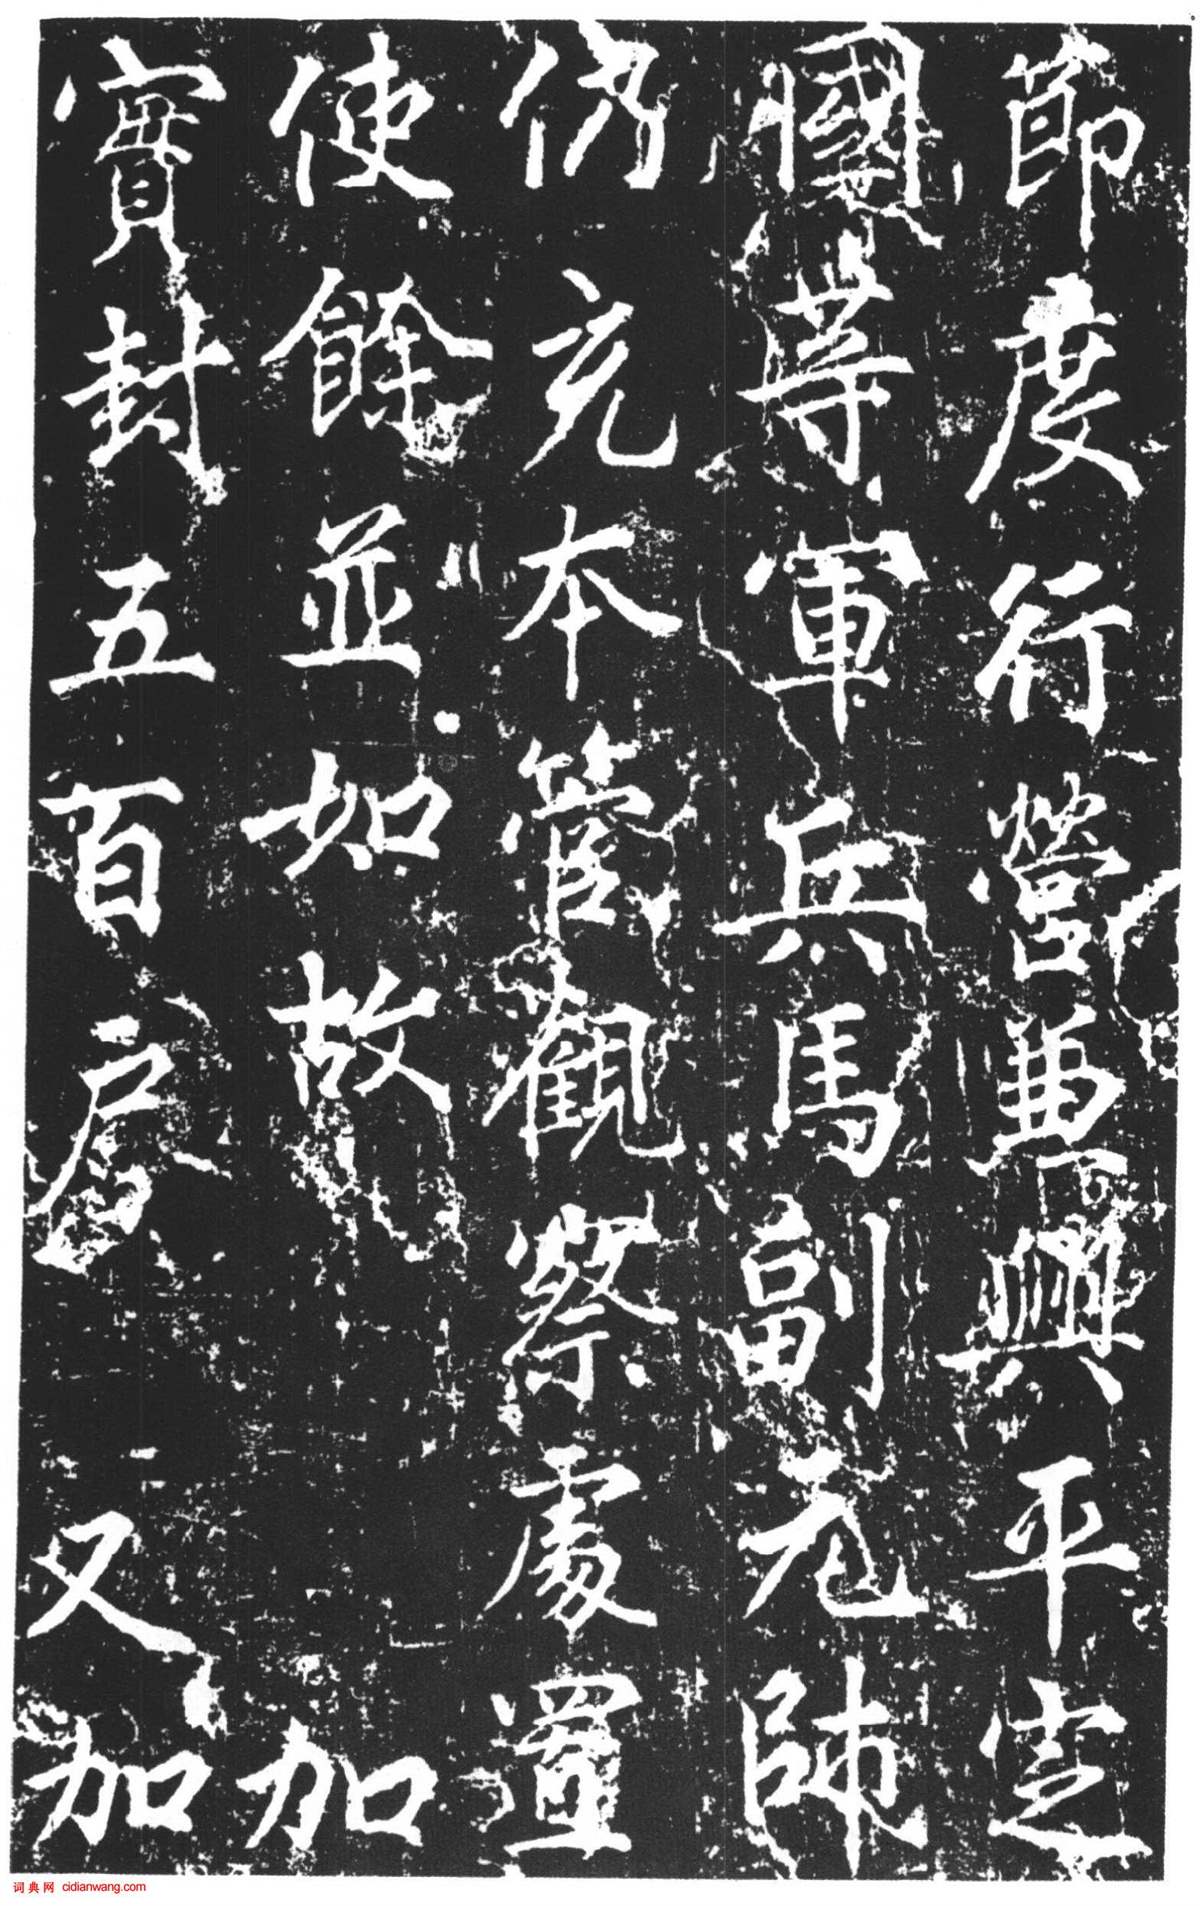 節度行營兼興平定
國等軍兵馬副元帥
仍充本管觀察處置
使餘並如故 加
實封五百戶 又加
词典网 cidianwang.com